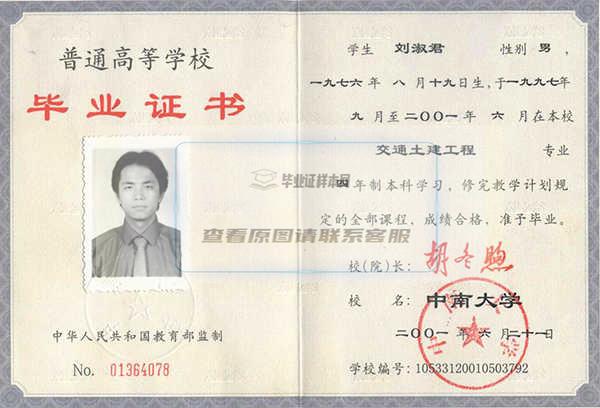 普通高等学校
毕业证书
中华人民共和国教育部监制
No. 01364078
学生 刘淑君 性别 男，
一九七六年 八 月 十九日生，于一九九七年
九 月至二〇〇一年 六 月在本校
交通土建工程 专业
四年制本科学习，修完教学计划规
定的全部课程，成绩合格，准予毕业。
校（院）长： 胡冬煦
校 名： 中南大学
二〇〇一年 六 月二十一日
学校编号：10533120010503792
毕业证样本网
查看原图请联系客服